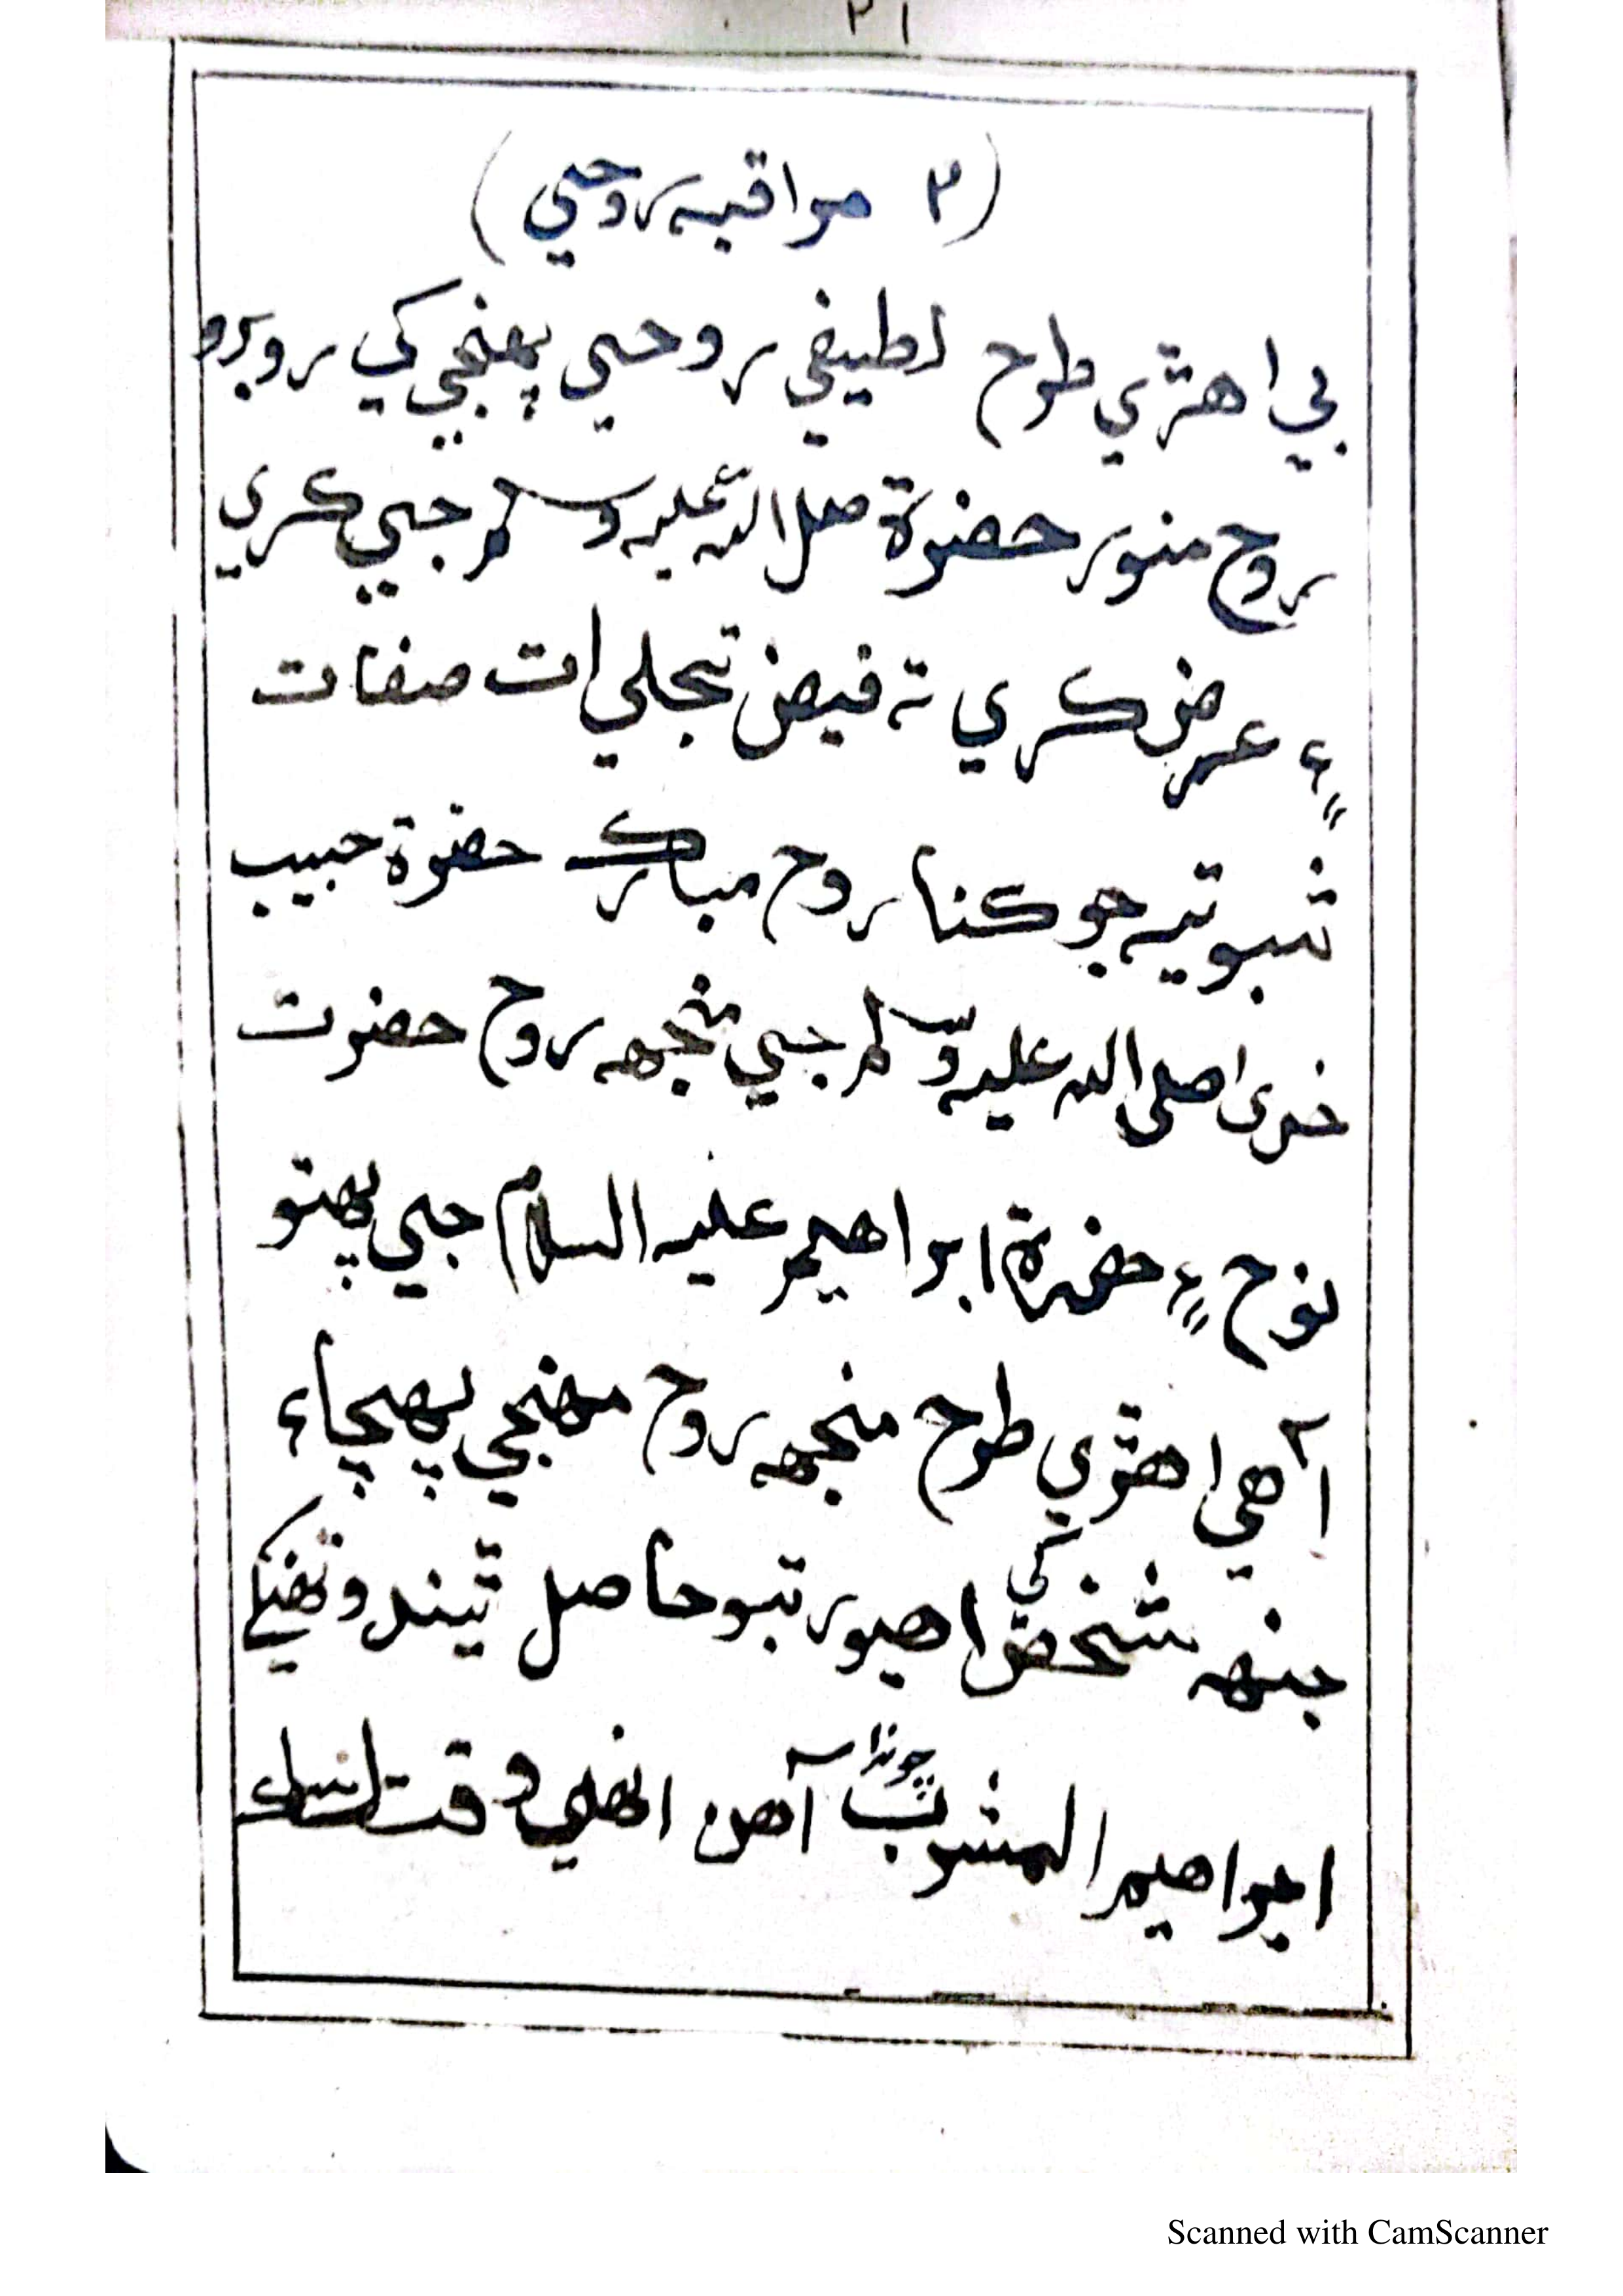 ٣١
(٣ مراقبه روحي)
بي اهڙي طرح لطيفي روحي پهنجي کي روبرو
روح منور حضرة صلی الله عليه وسلم جي کري
۽ عرض کري ته فيض تجلي ات صفات
ثبوتيه جو کنا روح مبارک حضرة حبيب
خدا صلی الله عليه وسلم جي منجهه روح حضرت
نوح ۽ حضرة ابراهيم عليه السلام جي پهتو
آهي اهڙي طرح منجهه روح مهنجي پهچاء
جنهه شخص کي اهيو رتبو حاصل ٿيندو تهنکي
ابراهيم المشرب چوندا آهن انهي وقت
Scanned with CamScanner